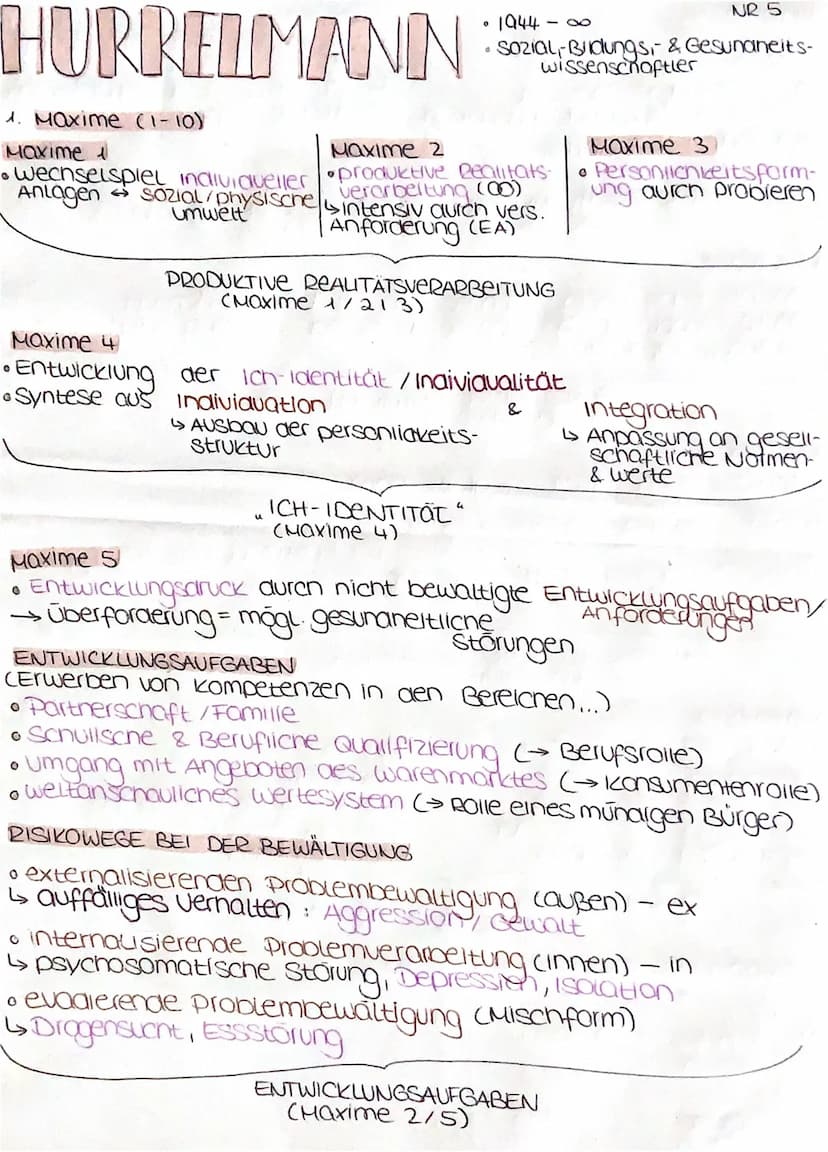 HURRELMANN
NR 5
• 1944 – ∞
• Sozial-, Bildungs,- & Gesundheits-
wissenschaftler
1. Maxime (1-10)
Maxime 1
• Wechselspiel individueller
Anlagen ↔ sozial/physische
umwelt
Maxime 2
• produktive Realitäts-
verarbeitung (∞)
↳ intensiv durch vers.
Anforderung (EA)
Maxime 3
• Persönlichkeitsform-
ung durch probieren
PRODUKTIVE REALITÄTSVERARBEITUNG
(Maxime 1/2/3)
Maxime 4
• Entwicklung der Ich-Identität / Individualität
• Syntese aus Individuation & Integration
↳ Ausbau der persönlichkeits-
struktur
↳ Anpassung an gesell-
schaftliche Normen-
& werte
„ICH-IDENTITÄT“
(Maxime 4)
Maxime 5
• Entwicklungsdruck durch nicht bewältigte Entwicklungsaufgaben/
Anforderungen
→ Überforderung = mögl. gesundheitliche
Störungen
ENTWICKLUNGSAUFGABEN
(Erwerben von Kompetenzen in den Bereichen...)
• Partnerschaft / Familie
• Schulische & Berufliche Qualifizierung (→ Berufsrolle)
• Umgang mit Angeboten des Warenmarktes (→ Konsumentenrolle)
• weltanschauliches Wertesystem (→ Rolle eines mündigen Bürger)
RISIKOWEGE BEI DER BEWÄLTIGUNG
• externalisierenden Problembewältigung (außen) – ex
↳ auffälliges Verhalten: Aggression, Gewalt
• internalisierende Problemverarbeitung (innen) – in
↳ psychosomatische Störung, Depression, Isolation
• evadierende Problembewältigung (Mischform)
↳ Drogensucht, Essstörung
ENTWICKLUNGSAUFGABEN
(Maxime 2/5)